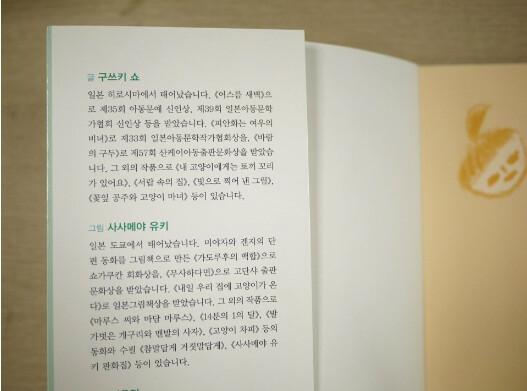 글 구쓰키 쇼
일본 히로시마에서 태어났습니다. 《어스름 새벽》으
로 제35회 아동문예 신인상, 제39회 일본아동문학
가협회 신인상 등을 받았습니다. 《피안화는 여우의
비녀》로 제33회 일본아동문학작가협회상을, 《바람
의 구두》로 제57회 산케이아동출판문화상을 받았습
니다. 그 외의 작품으로 《내 고양이에게는 토끼 꼬리
가 있어요》, 《서랍 속의 집》, 《빛으로 찍어 낸 그림》,
《꽃잎 공주와 고양이 마녀》 등이 있습니다.
그림 사사메야 유키
일본 도쿄에서 태어났습니다. 미야자와 겐지의 단
편 동화를 그림책으로 만든 《가도루후의 백합》으로
쇼가쿠칸 회화상을, 《무사하다면》으로 고단샤 출판
문화상을 받았습니다. 《내일 우리 집에 고양이가 온
다》로 일본그림책상을 받았습니다. 그 외의 작품으로
《마루스 씨와 마담 마루스》, 《14분의 1의 달》, 《발
가벗은 개구리와 맨발의 사자》, 《고양이 차피》 등의
동화와 수필 《참말답게 거짓말답게》, 《사사메야 유
키 판화집》 등이 있습니다.